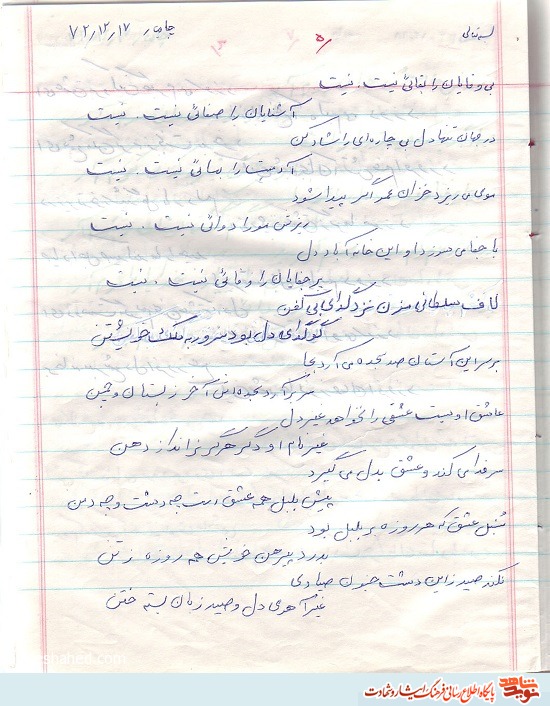 بسمه تعالی
چابهار ۷۲،۱۲،۱۷
بی وفایان را بقائی نیست، نیست
آشنایان را صفائی نیست، نیست
در جهان تنها دل بی چاره ای را شاد کن
آدمیت را بهائی نیست، نیست
موی می ریزد خزان عمر اگر پیدا شود
ریزش مو را دوائی نیست، نیست
با جفا می سوزد او این خانه آباد دل
پر جفایان را وفائی نیست، نیست
لاف سلطانی مزن نزد گدای بی کفن
کو گدای دل بود سرور به ملک خویشتن
بر سر این آستان صد سجده می آرد بجا
سر بر آرد سجده اش آخر ز بستان و چمن
عاشق او نیست عشقی را نخواهد غیر دل
غیر نام او دگر هرگز نراند از دهن
سر فدا می کند و عشق بدل می گیرد
پیش بلبل همه عشق است چه دشت و چه دمن
سنبل عشق که هر روزه بر بلبل بود
بدرد پیرهن خویش همه روزه ز تن
نکند صید ز این دشت جنون صیادی
غیر آهوی دل و صید زبان بسته ختن
shahed.com
نوید شاهد
پایگاه اطلاع رسانی فرهنگ ایثار و شهادت